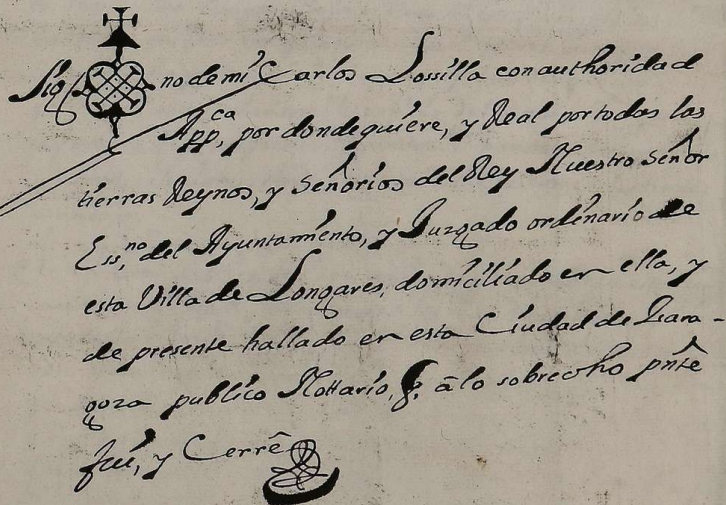 Sig no de mi Carlos Lossilla con authoridad
App,ca por donde quiere, y Real por todas las
tierras Reynos, y Señorios del Rey Nuestro Señor
Ess,no del Ayuntamiento, y Juzgado ordinario de
esta Villa de Longares, domiciliado en ella, y
de presente hallado en esta Ciudad de Zara-
goza publico Nottario, q, â lo sobredho pñte
fui, y Cerrê